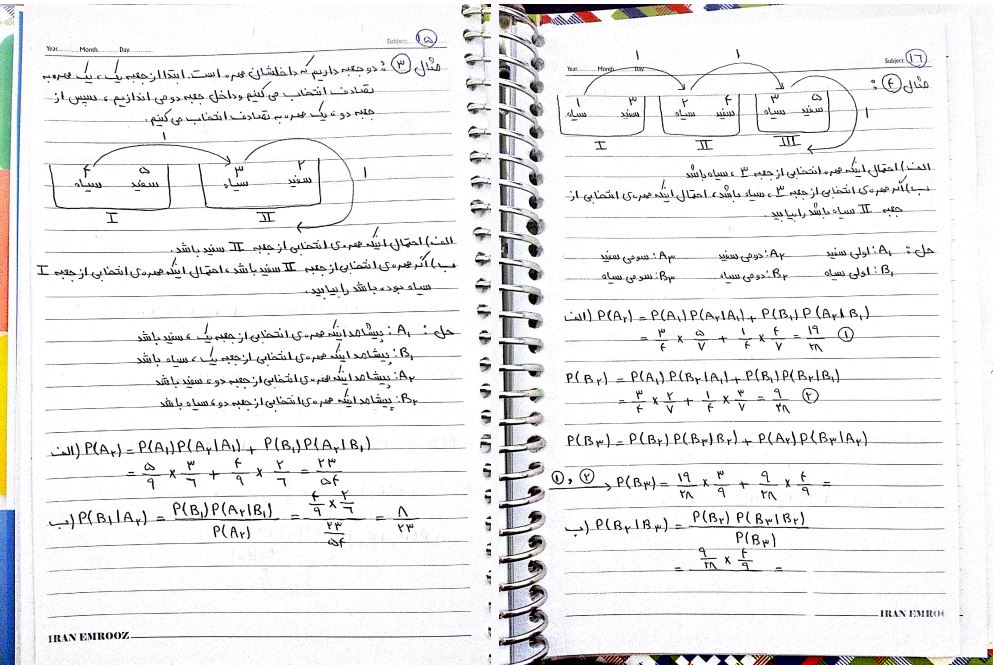 Subject: ۱۵
Year......... Month......... Day.........
مثال ۳: دو جعبه داریم که داخلشان مهره است. ابتدا از جعبه یک، یک مهره به
تصادف انتخاب می کنیم و داخل جعبه دومی اندازیم، سپس از
جعبه دو، یک مهره به تصادف انتخاب می کنیم.
۱
۴ سیاه ۵ سفید ۳ سیاه ۲ سفید ۱
I II
الف) احتمال اینکه مهره ی انتخابی از جعبه II سفید باشد.
ب) اگر مهره ی انتخابی از جعبه II سفید باشد، احتمال اینکه مهره ی انتخابی از جعبه I
سیاه بوده باشد را بیابید.
حل: A₁: پیشامد اینکه مهره ی انتخابی از جعبه یک، سفید باشد
B₁: پیشامد اینکه مهره ی انتخابی از جعبه یک، سیاه باشد
A₂: پیشامد اینکه مهره ی انتخابی از جعبه دو، سفید باشد
B₂: پیشامد اینکه مهره ی انتخابی از جعبه دو، سیاه باشد
الف) P(A₂) = P(A₁)P(A₂|A₁) + P(B₁)P(A₂|B₁)
= ۵/۹ × ۳/۶ + ۴/۹ × ۲/۶ = ۲۳/۵۴
ب) P(B₁|A₂) = P(B₁)P(A₂|B₁) / P(A₂) = (۴/۹ × ۲/۶) / (۲۳/۵۴) = ۸/۲۳
IRAN EMROOZ
Subject: ۱۶
Year......... Month......... Day.........
مثال ۴:
۱ ۱
۱ سیاه ۳ سفید ۲ سیاه ۴ سفید ۳ سیاه ۵ سفید ۱
I II III
الف) احتمال اینکه مهره انتخابی از جعبه ۳، سیاه باشد
ب) اگر مهره ی انتخابی از جعبه ۳، سیاه باشد، احتمال اینکه مهره ی انتخابی از
جعبه II سیاه باشد را بیابید.
حل: A₁: اولی سفید A₂: دومی سفید A₃: سومی سفید
B₁: اولی سیاه B₂: دومی سیاه B₃: سومی سیاه
الف) P(A₂) = P(A₁)P(A₂|A₁) + P(B₁)P(A₂|B₁)
= ۳/۴ × ۵/۷ + ۱/۴ × ۴/۷ = ۱۹/۲۸ ①
P(B₂) = P(A₁)P(B₂|A₁) + P(B₁)P(B₂|B₁)
= ۳/۴ × ۲/۷ + ۱/۴ × ۳/۷ = ۹/۲۸ ②
P(B₃) = P(B₂)P(B₃|B₂) + P(A₂)P(B₃|A₂)
①, ② → P(B₃) = ۱۹/۲۸ × ۳/۹ + ۹/۲۸ × ۴/۹ =
ب) P(B₂|B₃) = P(B₂)P(B₃|B₂) / P(B₃)
= ۹/۲۸ × ۴/۹ =
IRAN EMRO